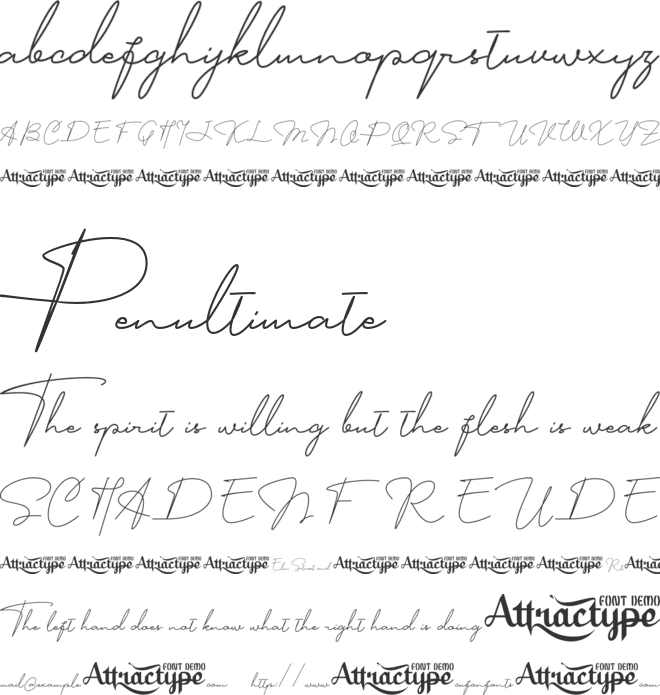 abcdefghijklmnopqrstuvwxyz
ABCDEFGHIJKLMNOPQRSTUVWXYZ
Attractype FONT DEMO Attractype FONT DEMO Attractype FONT DEMO Attractype FONT DEMO Attractype FONT DEMO Attractype FONT DEMO Attractype FONT DEMO Attractype FONT DEMO Attractype FONT DEMO Attracty
Penultimate
The spirit is willing but the flesh is weak
SCHADENFREUDE
Attractype FONT DEMO Attractype FONT DEMO Attractype FONT DEMO Elm Street and Attractype FONT DEMO Attractype FONT DEMO Attractype FONT DEMO Attractype FONT DEMO Rd Attractype
The left hand does not know what the right hand is doing Attractype FONT DEMO
mail@example Attractype FONT DEMO com http:// www Attractype FONT DEMO cufonfonts Attractype FONT DEMO com